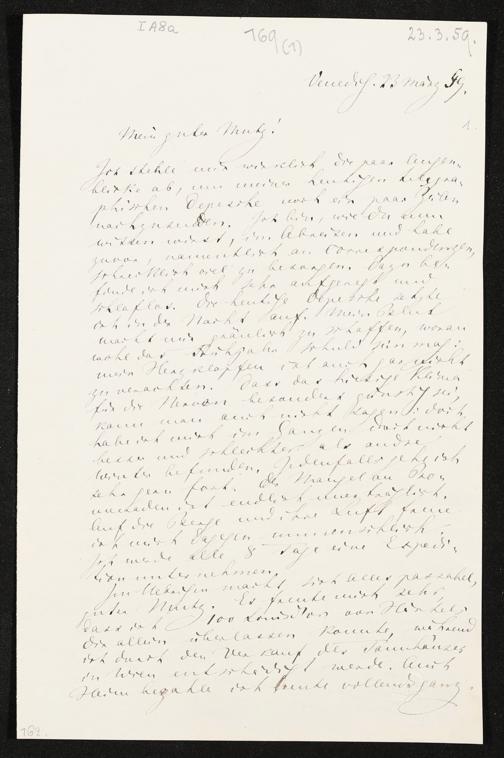 I A8a
169
(1)
23.3.59.
Venedig. 23 März 59.
1.
Mein guter Mutz!
Ich stehle mir wirklich die paar Augen-
blicke ab, um meiner heutigen telegra-
phischen Depesche noch ein paar Zeilen
nachzusenden. Ich bin, wie Du nun
wissen wirst, im Abreisen und habe
zuvor, namentlich an Correspondenzen,
schrecklich viel zu besorgen. Dazu be-
finde ich mich sehr aufgeregt und
schlaflos. Die heutige Depesche setzte
ich in der Nacht auf. Mein Blut
macht mir gräulich zu schaffen, woran
wohl das Frühjahr Schuld sein mag:
mein Herzklopfen ist auch gar nicht
zu verachten. Dass das hiesige Klima
für die Nerven besonders günstig sei,
kann man auch nicht sagen: doch
habe ich mich im Ganzen doch nicht
besser und schlechter als andre
Winter befunden. Jedenfalls gehe ich
sehr gern fort. Der Mangel an Pro-
menaden ist endlich unerträglich.
Auf die Berge und ihre Luft freue
ich mich dagegen unmenschlich.
Ich werde alle 8 Tage eine Expedi-
tion unternehmen.
Im Uebrigen macht sich Alles passabel,
guter Mutz. Es freute mich sehr,
dass ich 100 Louisd'or von Härtels
Dir allein überlassen konnte, während
ich durch den Verkauf des Tannhäuser
in Wien entschädigt werde. Auch
Heim bezahle ich heute vollends ganz.
169.